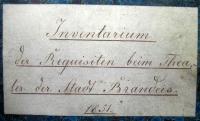 Inventarium
der Requisiten beim Thea-
ter der Stadt Brandeis.
1851.